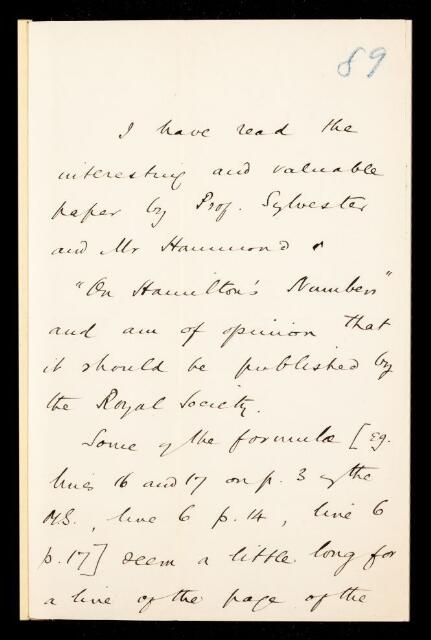 89
I have read the
interesting and valuable
paper by Prof. Sylvester
and Mr Hammond
"On Hamilton's Numbers"
and am of opinion that
it should be published by
the Royal Society.
Some of the formulæ [Eg.
lines 16 and 17 on p. 3 of the
MS., line 6 p. 14, line 6
p. 17] seem a little long for
a line of the page of the